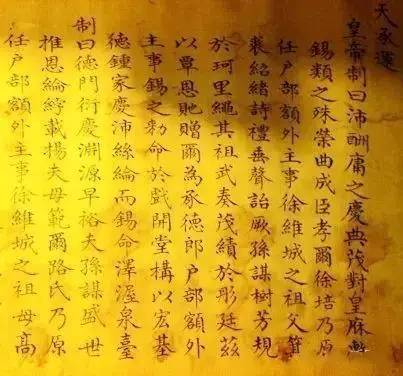 天承運
皇帝制曰沛酬庸之慶典茂對皇庥懋
錫類之殊榮曲成臣孝爾徐培乃原
任戶部額外主事徐維城之祖父箕
裘紹緒詩禮垂聲詒厥孫謀樹芳規
於珂里繩其祖武奏茂績於彤廷茲
以覃恩貤贈爾為承德郎戶部額外
主事錫之勑命於戲開堂構以宏基
德鍾家慶沛絲綸而錫命澤渥泉臺
制曰德門衍慶淵源早裕夫孫謀盛世
推恩綸綍載揚夫母範爾路氏乃原
任戶部額外主事徐維城之祖母高